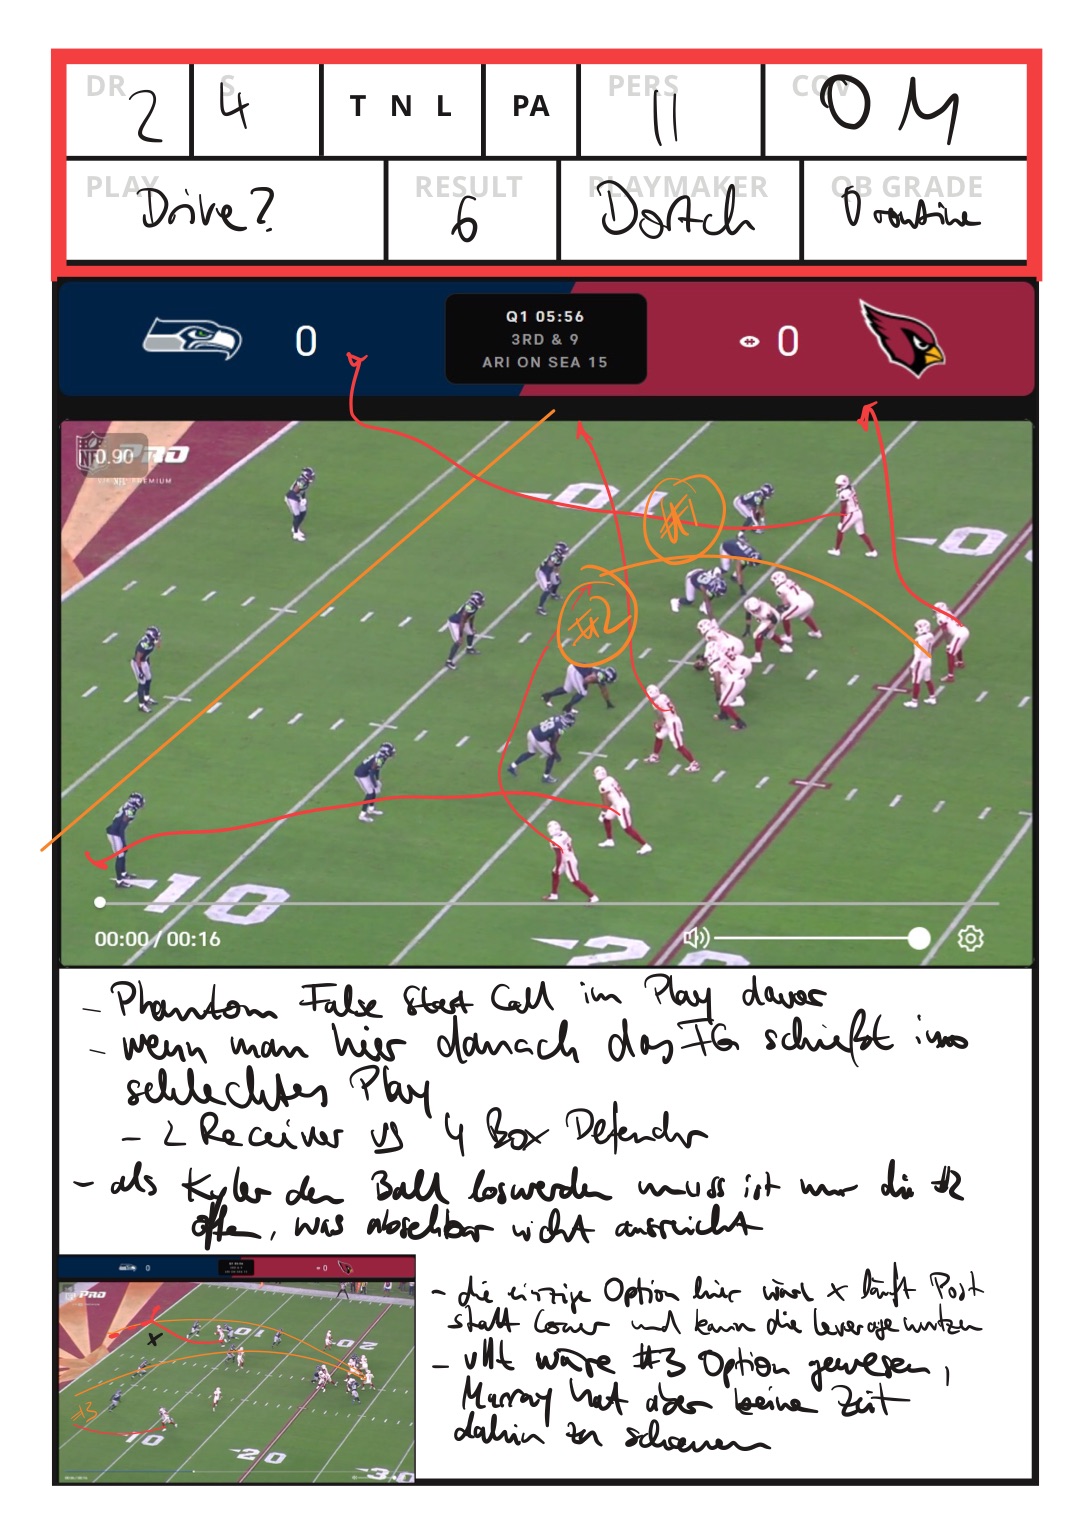 DR 2
S 4
T N L
PA
PERS 11
COV 0 M
PLAY Drive?
RESULT 6
PLAYMAKER Dortch
QB GRADE 0 routine
0
Q1 05:56
3RD & 9
ARI ON SEA 15
0
NFL PRO
0.90
PREMIUM
#1
#2
0
0
10
20
00:00 / 00:16
- Phantom False Start Call im Play davor
- wenn man hier danach das FG schießt ins
schlechtes Play
- 2 Receiver vs 4 Box Defender
- als Kyler den Ball loswerden muss ist nur die #2
offen, was absehbar nicht ausreicht
PRO
X
#3
10
20
10
20
3 0
- die einzige Option hier wäre x läuft Post
statt Corner und kann die leverage nutzen
- vllt wäre #3 Option gewesen,
Murray hat aber keine Zeit
dahin zu schauen